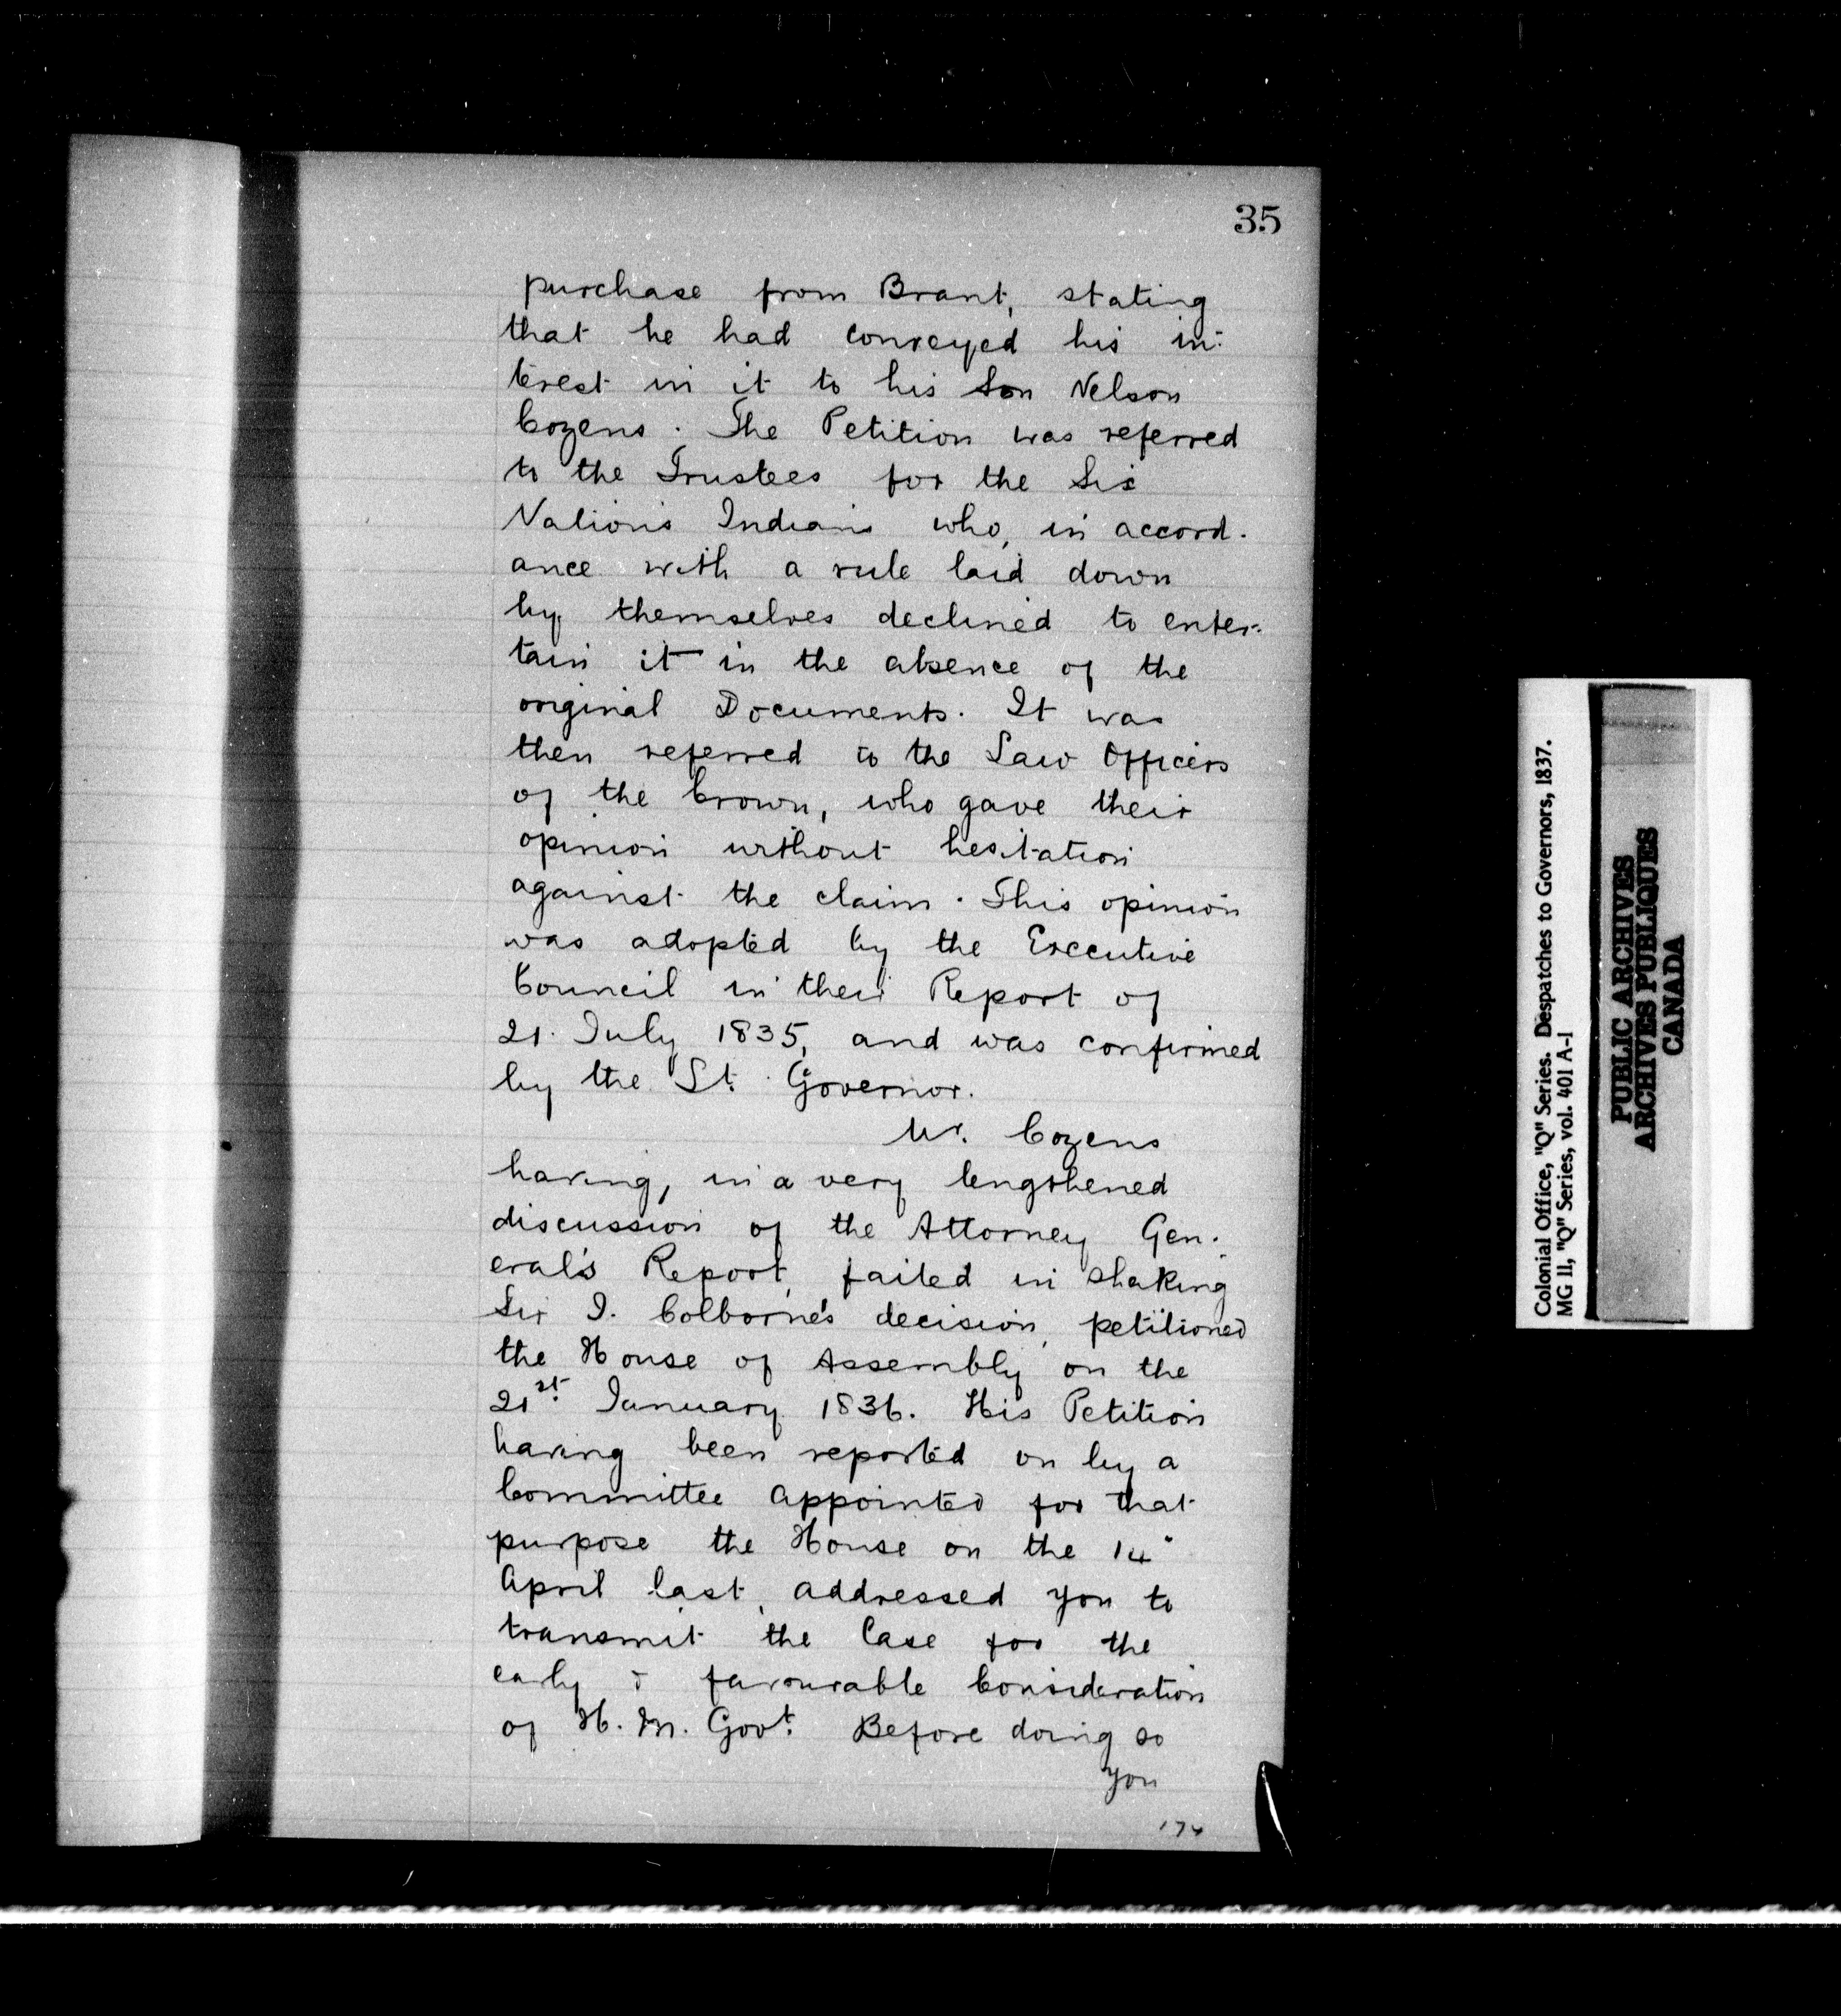 35
purchase from Brant, stating
that he had conveyed his in-
terest in it to his Son Nelson
Cozens. The Petition was referred
to the Trustees for the Six
Nations Indians who, in accord-
ance with a rule laid down
by themselves declined to enter-
tain it in the absence of the
original Documents. It was
then referred to the Law Officers
of the Crown, who gave their
opinion without hesitation
against the claim. This opinion
was adopted by the Executive
Council in their Report of
21. July 1835, and was confirmed
by the Lt. Governor.
Mr. Cozens
having, in a very lengthened
discussion of the Attorney Gen-
eral's Report, failed in shaking
Sir J. Colborne's decision, petitioned
the House of Assembly on the
21st January 1836. His Petition
having been reported on by a
Committee appointed for that
purpose the House on the 14"
April last, addressed you to
transmit the Case for the
early & favourable Consideration
of H. M. Govt. Before doing so
you
Colonial Office, "Q" Series. Despatches to Governors, 1837.
MG 11, "Q" Series, vol. 401 A-1
PUBLIC ARCHIVES
ARCHIVES PUBLIQUES
CANADA